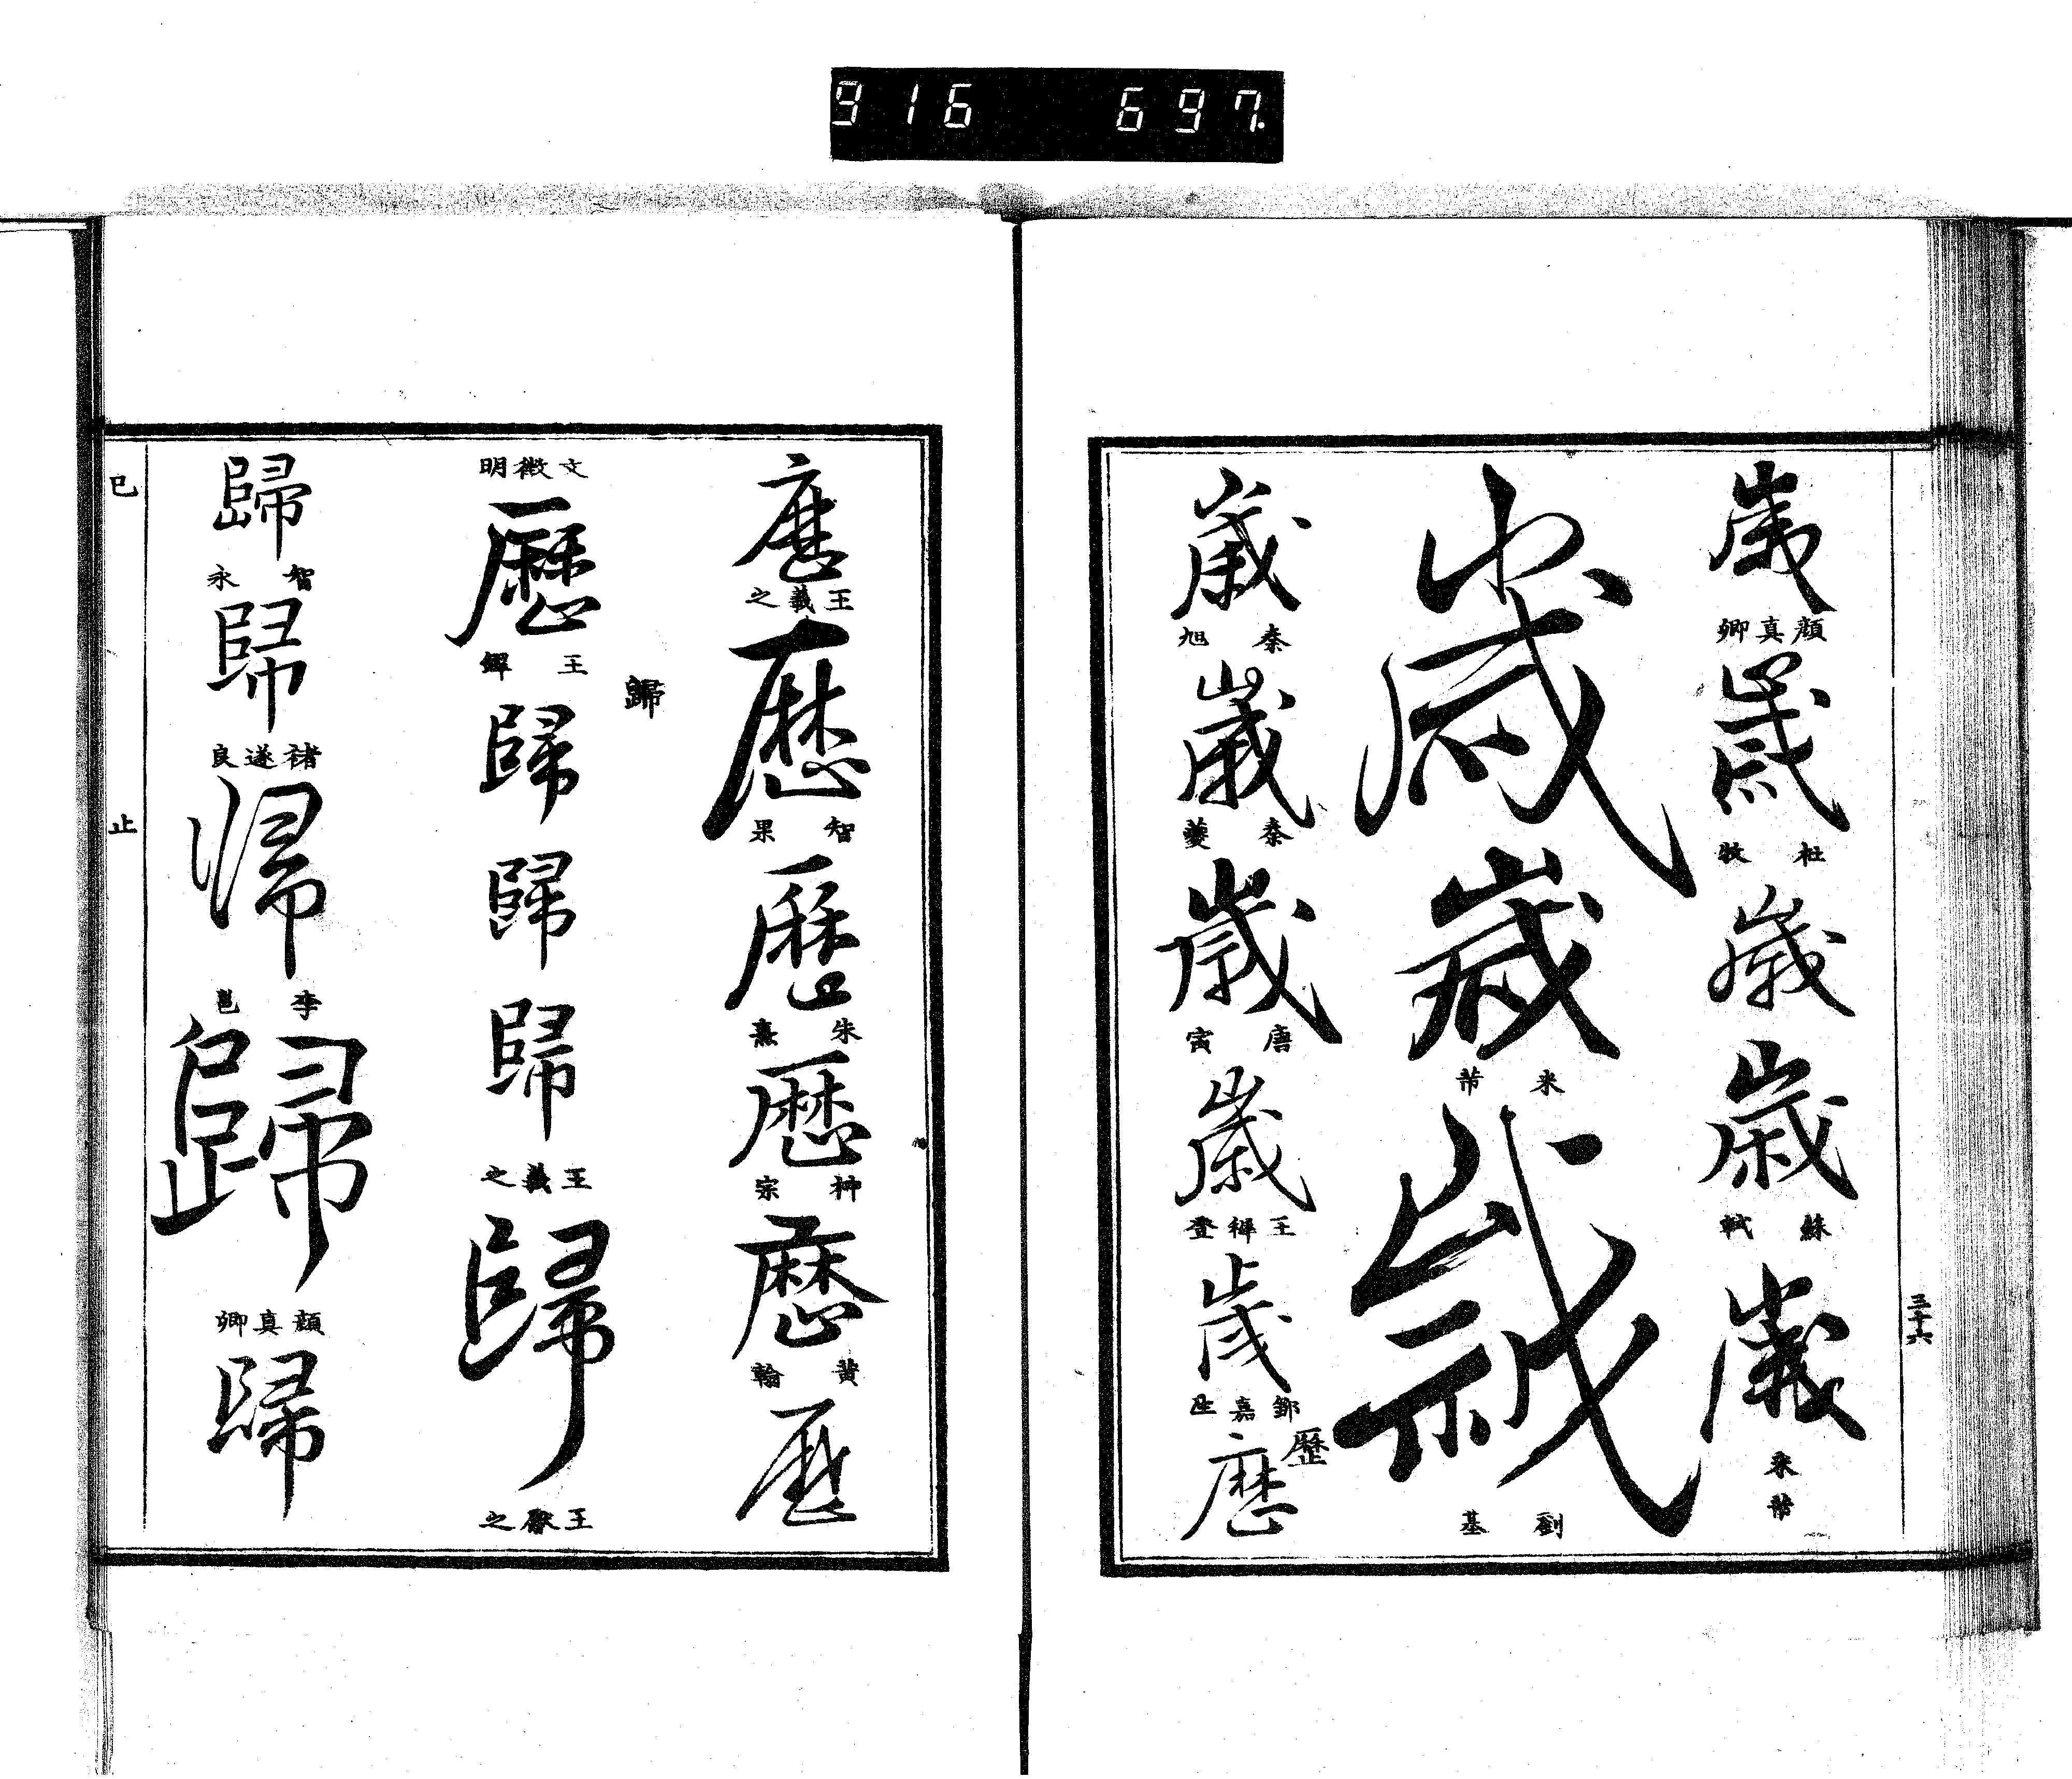 916 697.
三十六
歲
顏真卿
歲
杜牧
歲
歲
蘇軾
歲
米芾
歲
歲
米芾
歲
劉基
歲
泰旭
歲
泰夔
歲
唐寅
歲
王穉登
歲
鄒嘉生
歷
歷
歷
王羲之
歷
智果
歷
朱熹
歷
神宗
歷
黃翰
歷
文徵明
歷
王鐸
歸
歸
歸
歸
王羲之
歸
王獻之
歸
智永
歸
褚遂良
歸
李邕
歸
顏真卿
歸
巳
止